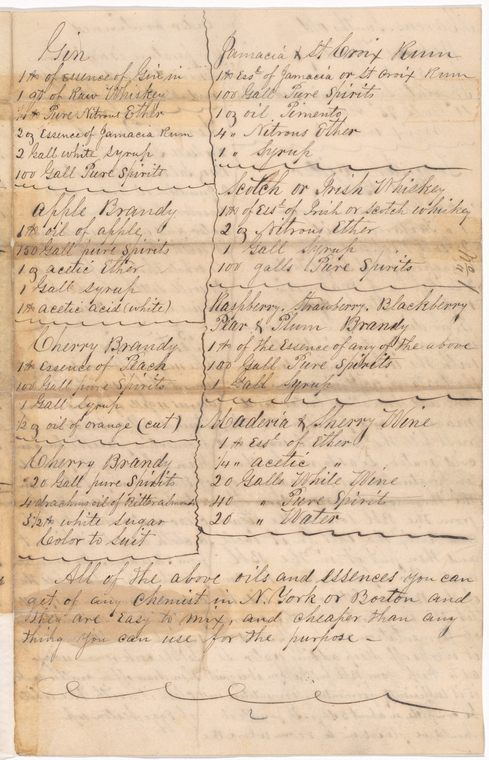 Gin
1 ℔ of essence of Gin in
1 qt of Raw Whiskey
¼ ℔ Pure Nitrous Ether
2 oz Essence of Jamacia Rum
2 Gall white syrup
100 Gall Pure Spirits
Apple Brandy
1 ℔ oil of apple
150 Gall pure spirits
1 oz acetic Ether
1 Gall syrup
1 ℔ acetic acid (white)
Cherry Brandy
1 ℔ Essence of Peach
100 Gall pure Spirits
1 Gall Syrup
½ oz oil of orange (cut)
Cherry Brandy
20 Gall pure Spirits
4 drachms oil of Bitter almond
5½ ℔ white sugar
Color to suit
Jamacia & St Croix Rum
1 ℔ Ess. of Jamacia or St Croix Rum
100 Gall Pure Spirits
1 oz oil Pimento
4 " Nitrous Ether
1 " Syrup
Scotch or Irish Whiskey
1 ℔ of Ess. of Irish or Scotch whiskey
2 oz Nitrous Ether
1 Gall Syrup
100 galls Pure Spirits
Raspberry, Strawberry, Blackberry
Pear & Plum Brandy
1 ℔ of the Essence of any of the above
100 Gall Pure Spirits
1 Gall syrup
Maderia & Sherry Wine
1 ℔ Ess. of Ether
¼ " acetic "
20 Galls White Wine
40 " Pure Spirit
20 " Water
All of the above oils and Essences you can
get of any Chemist in N. York or Boston and
they are Easy to mix, and cheaper than any
thing you can use for the purpose -
2